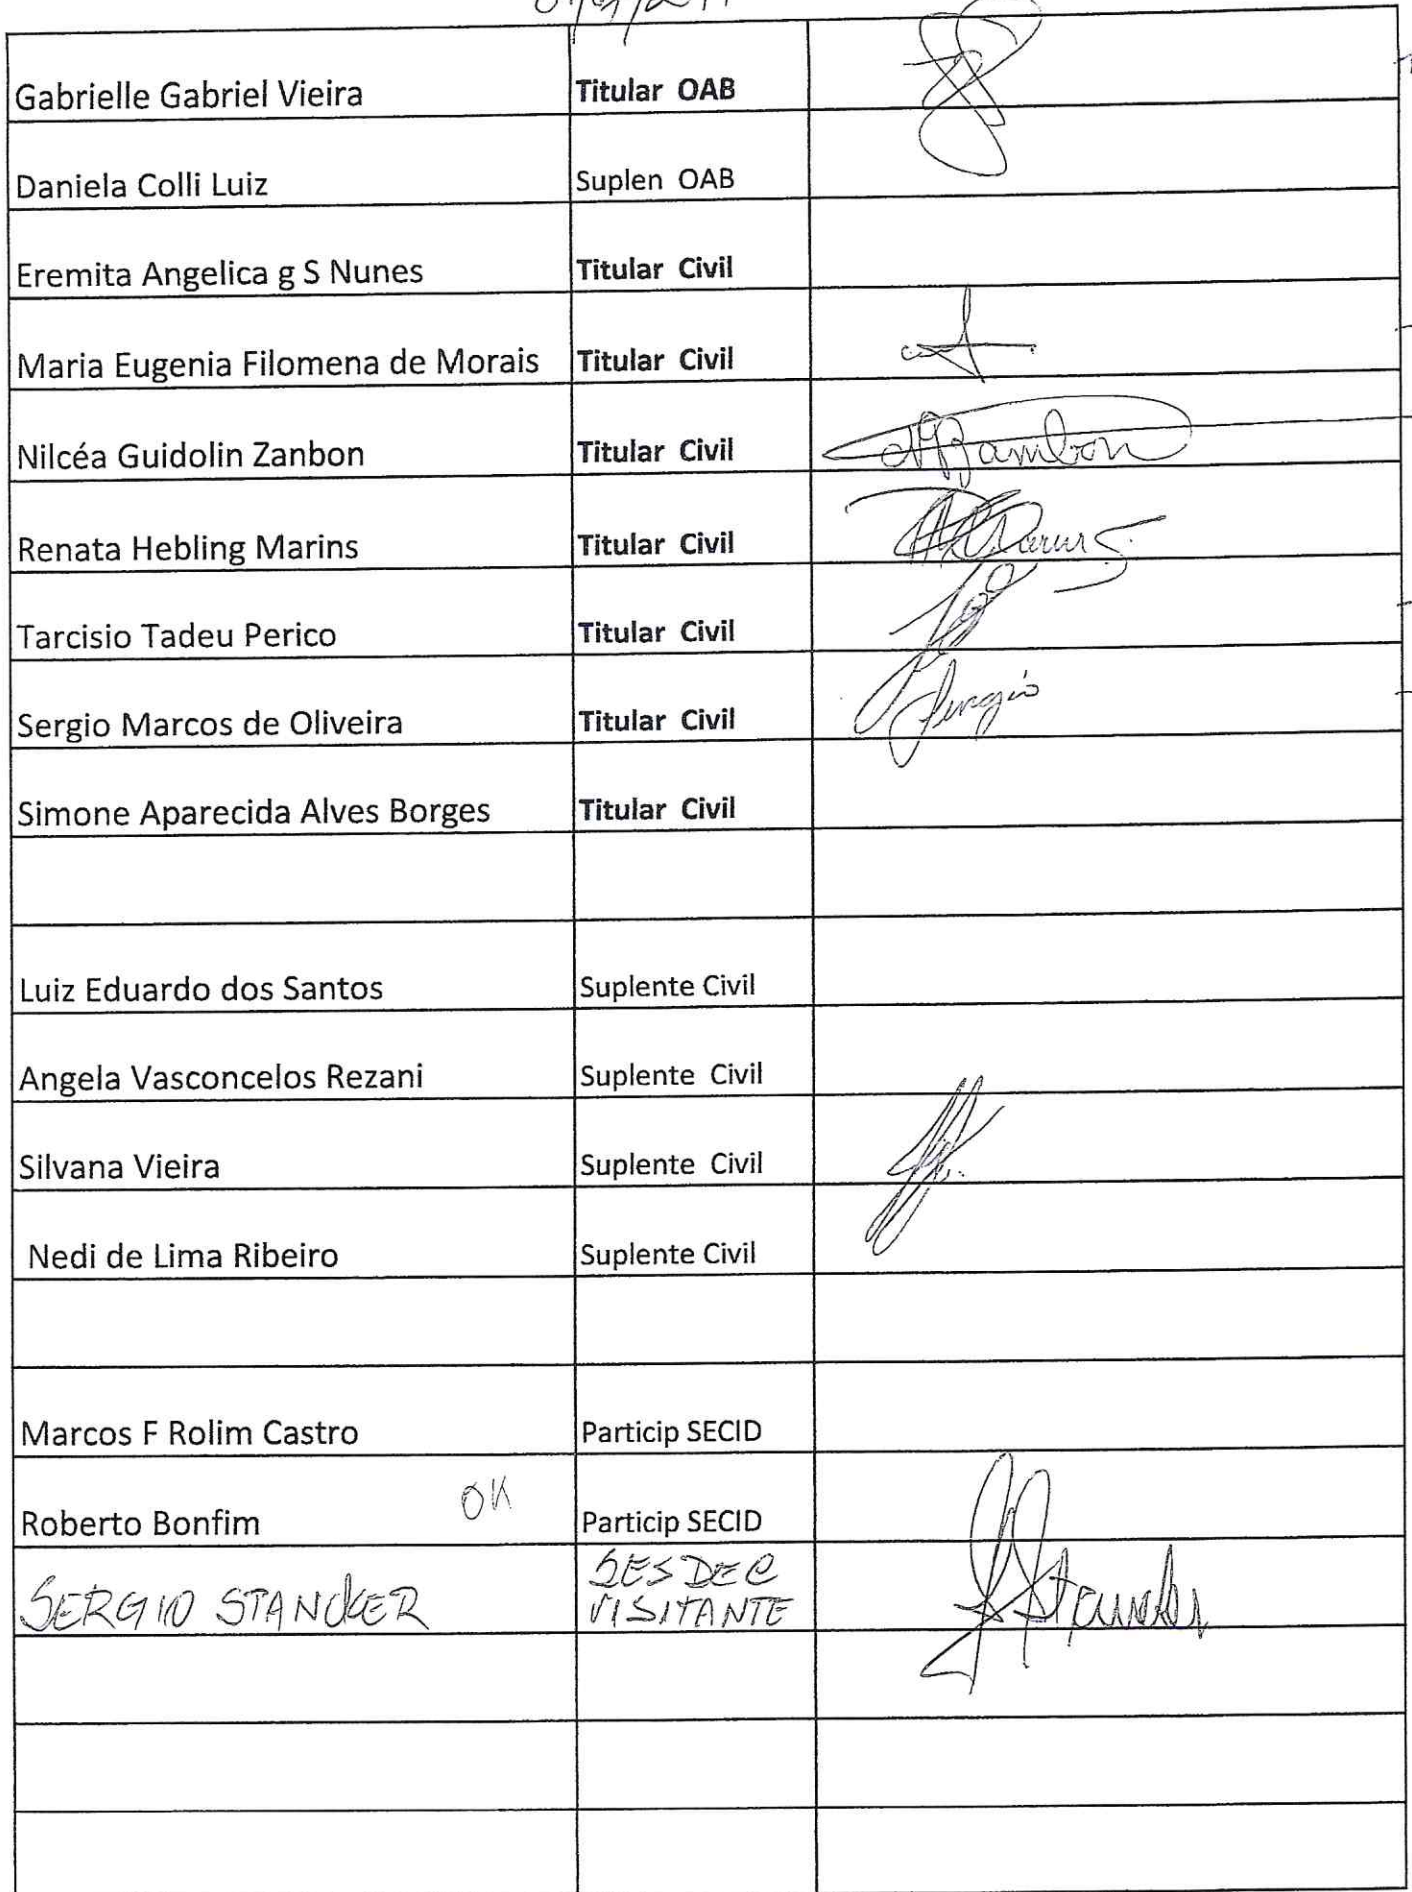 Gabrielle Gabriel Vieira Titular OAB
Daniela Colli Luiz Suplen OAB
Eremita Angelica g S Nunes Titular Civil
Maria Eugenia Filomena de Morais Titular Civil
Nilcéa Guidolin Zanbon Titular Civil
Renata Hebling Marins Titular Civil
Tarcisio Tadeu Perico Titular Civil
Sergio Marcos de Oliveira Titular Civil Sergio
Simone Aparecida Alves Borges Titular Civil
Luiz Eduardo dos Santos Suplente Civil
Angela Vasconcelos Rezani Suplente Civil
Silvana Vieira Suplente Civil
Nedi de Lima Ribeiro Suplente Civil
Marcos F Rolim Castro Particip SECID
Roberto Bonfim OK Particip SECID
SERGIO STANCKER SESDEC
VISITANTE